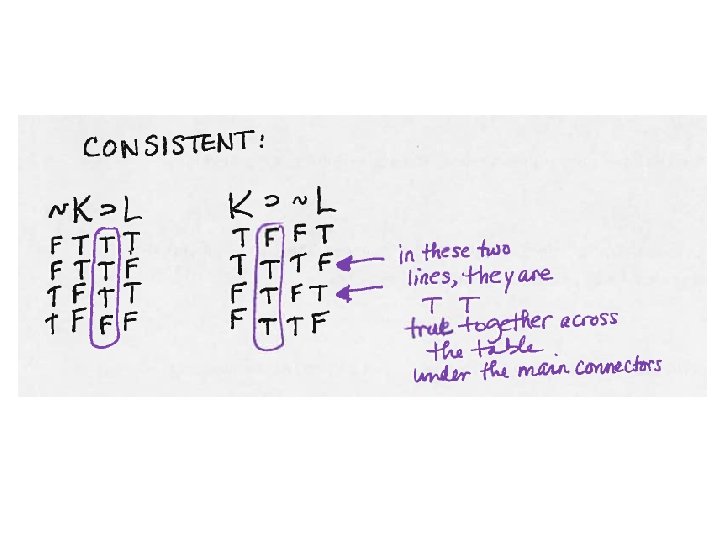 CONSISTENT:
~K ⊃ L K ⊃ ~ L
F T T T T F F T
F T T F T T T F
T F T T F T F T
T F F F F T T F
in these two
lines, they are
T T
true together across
the table
under the main connectors